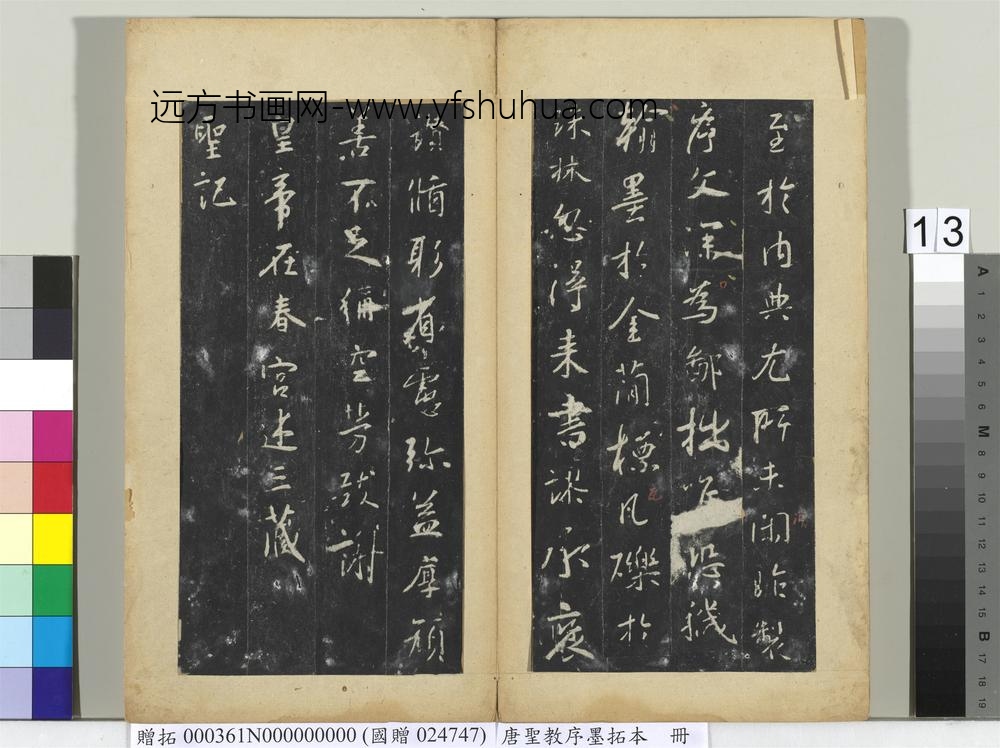 远方书画网-www.yfshuhua.com
至於內典尤所未閑昨製
序文深為鄙拙唯恐穢
翰墨於金簡標瓦礫於
珠林忽得來書謬承褒
讚循躬省慮彌益厚顏
善不足稱空勞致謝
皇帝在春宮述三藏
聖記
13
A 1 2 3 4 5 6 M 8 9 10 11 12 13 14 15 B 17 18 19
贈拓 000361N000000000 (國贈 024747) 唐聖教序墨拓本 冊